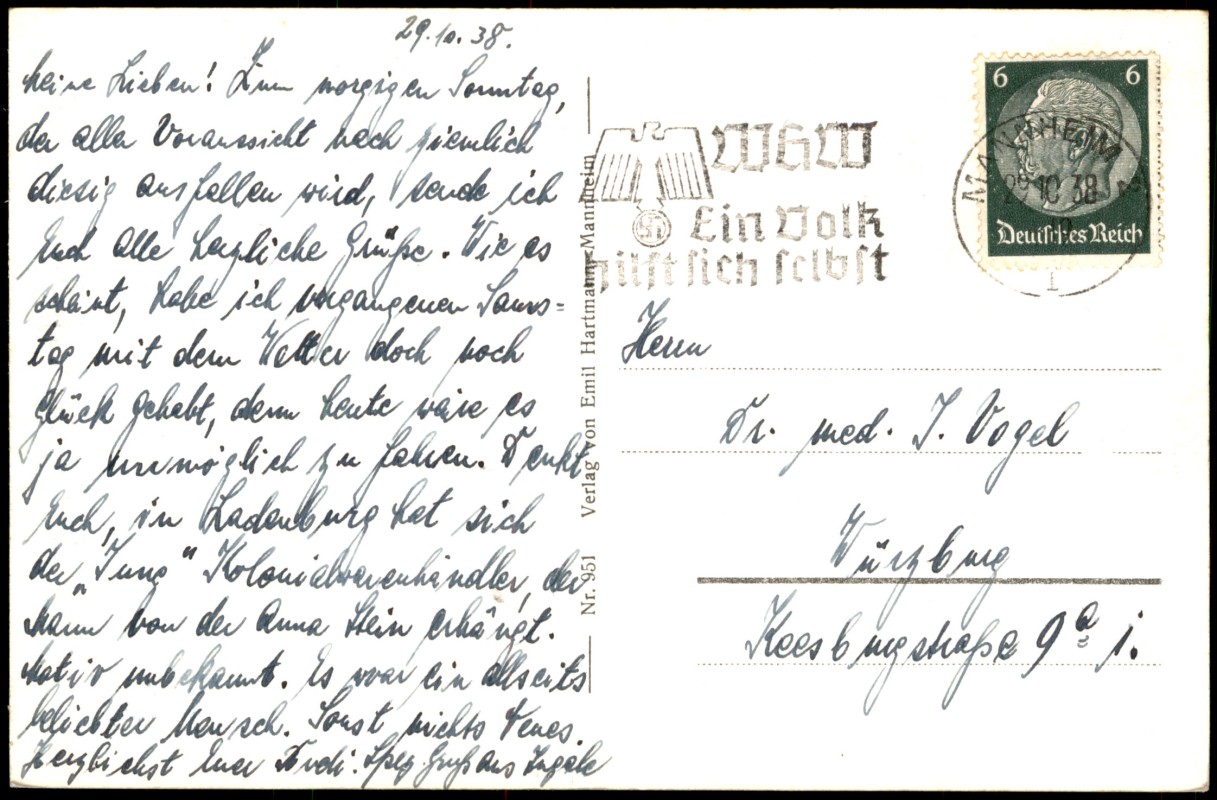 29.10.38.
Meine Lieben! Zum morgigen Sonntag,
der aller Voraussicht nach ziemlich
diesig ausfallen wird, sende ich
Euch alle herzliche Grüße. Wie es
scheint, habe ich vergangenen Sams=
tag mit dem Wetter doch noch
Glück gehabt, denn heute wäre es
ja unmöglich zu fahren. Denkt
Euch, in Ladenburg hat sich
der „Jung" Kolonialwarenhändler, der
Mann von der Anna Stein erhängt.
Motiv unbekannt. Es war ein allseits
beliebter Mensch. Sonst nichts Neues.
Herzlichst Euer Ferdi. Spez. Gruß ans
Nr. 951 Verlag von Emil Hartmann-Mannheim
WHW
Ein Volk
hilft sich selbst
6 6
Deutsches Reich
MANNHEIM
29.10.38
1
Herrn
Dr. med. J. Vogel
Würzburg
Keesburgstraße 9a I.